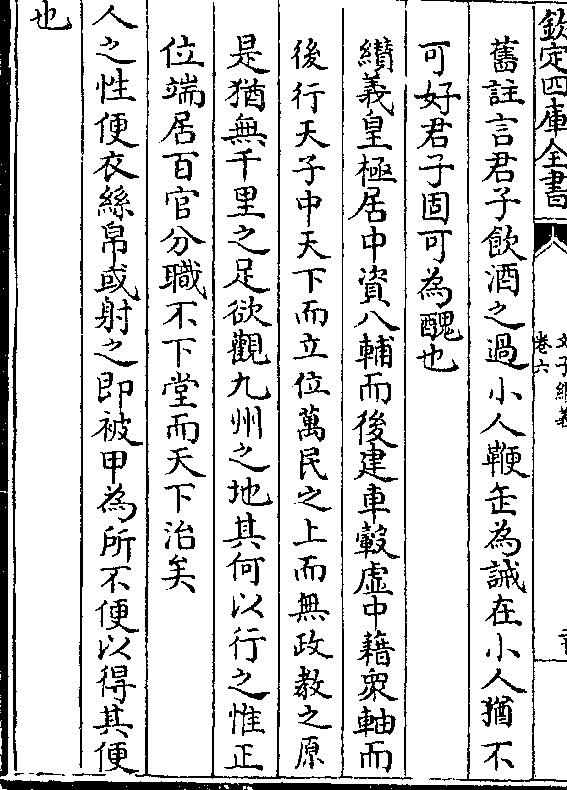 欽定四庫全書
卷六
舊註言君子飲酒之過小人鞭缶為誡在小人猶不
可好君子固可為醜也
纘義皇極居中資八輔而後建車轂虛中藉衆軸而
後行天子中天下而立位萬民之上而無政教之原
是猶無千里之足欲觀九州之地其何以行之惟正
位端居百官分職不下堂而天下治矣
人之性便衣絲帛或射之即被甲為所不便以得其便
也